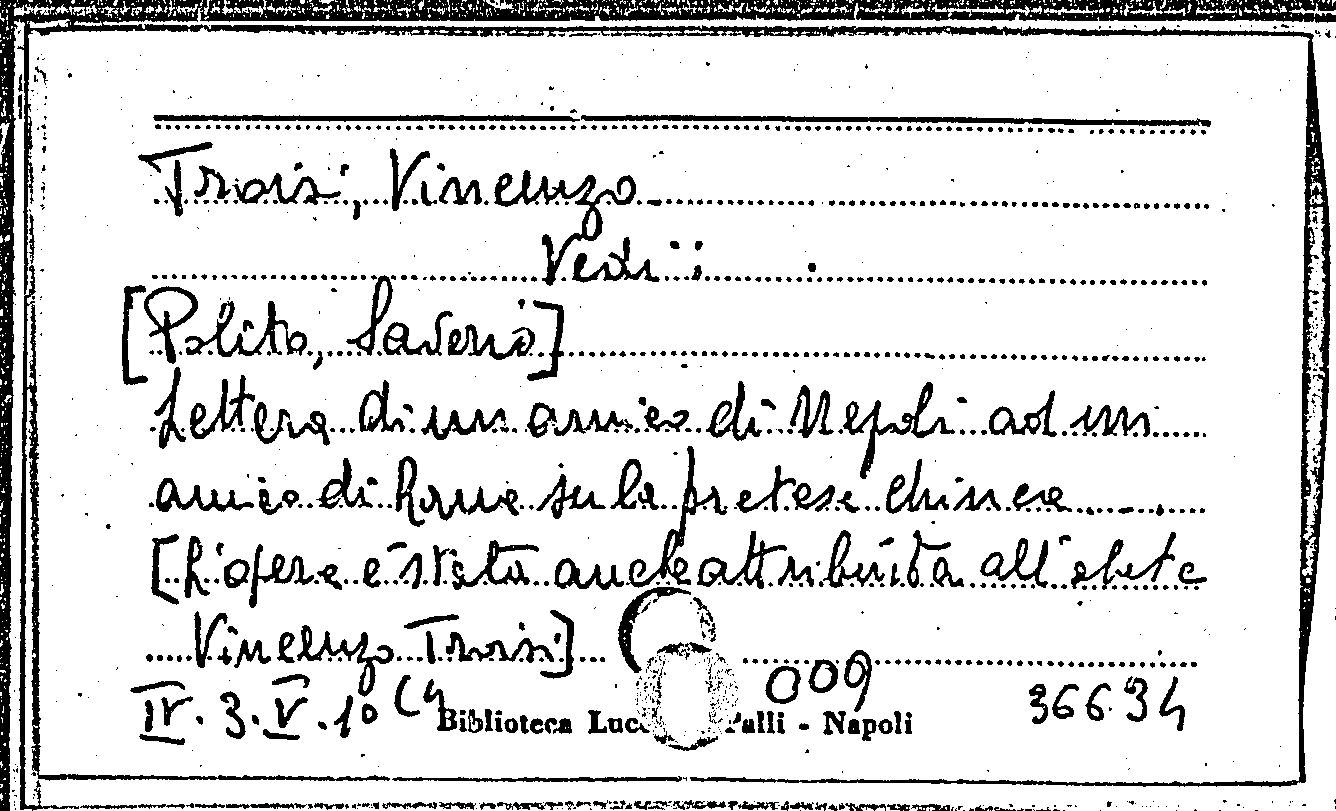 Troisi, Vincenzo
Vedi:
[Polito, Saverio]
Lettera di un amico di Napoli ad un
amico di Roma su la pretesa chinea ...
[L'opera è stata anche attribuita all'abate
Vincenzo Troisi]
IV. 3. V. 10 (4 009 36634
Biblioteca Lucc Palli - Napoli